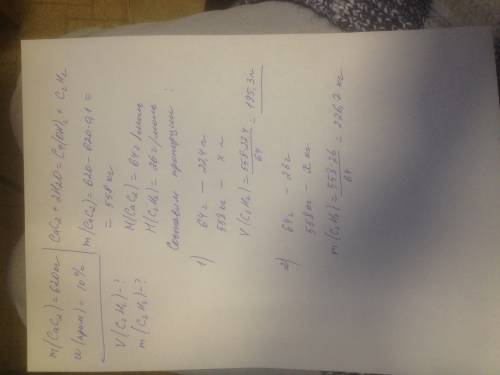 m(CaC₂) = 620кг
w(прим) = 10%
V(C₂H₂) - ?
m(C₂H₂) - ?
CaC₂ + 2H₂O = Ca(OH)₂ + C₂H₂
m(CaC₂) = 620 - 620·0,1 =
= 558 кг
M(CaC₂) = 64 г/моль
M(C₂H₂) = 26 г/моль
Составим пропорции:
1) 64г — 22,4л
558кг — x л
V(C₂H₂) = 558·22,4/64 = 195,3 л
2) 64г — 26г
558кг — x кг
m(C₂H₂) = 558·26/64 = 226,7 кг